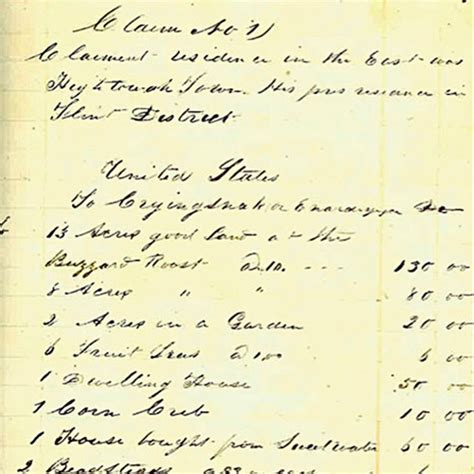 Claim No 1
Claiment residence in the East was
Hightowah Town. His pres residence in
Flint District
United States
To Cryingsnake or Dr
13 Acres good land at the
Buzzard Roost @ 10. --- 130 00
8 Acres " " 80 00
2 Acres in a Garden 20 00
6 Fruit Trees @ 1 00 6 00
1 Dwelling House 50 00
1 Corn Crib 10 00
1 House bought from Sweetwater 60 00
2 Bedsteads